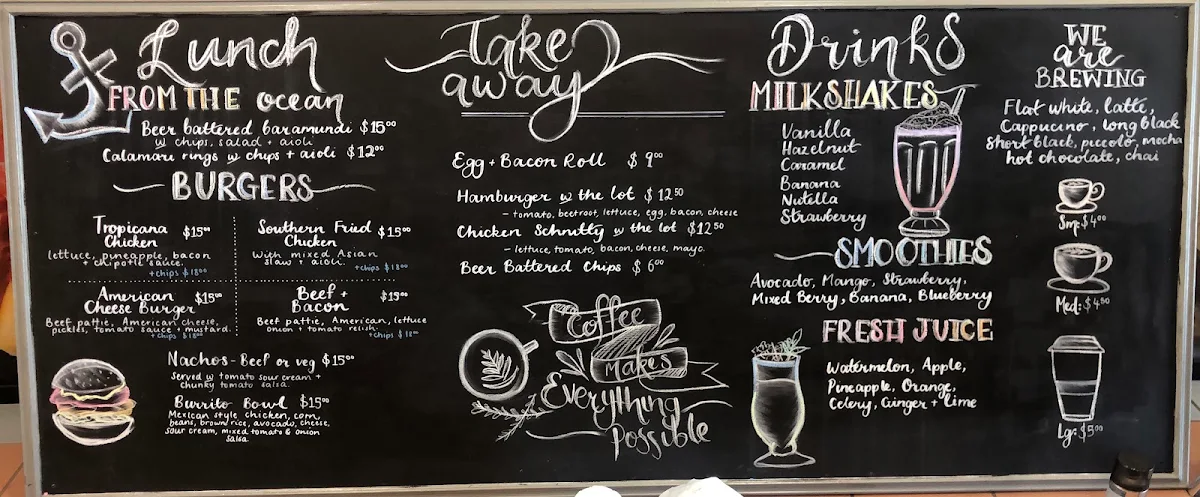 Lunch
FROM THE ocean
Beer battered baramundi $15⁰⁰
w chips, salad + aioli
Calamari rings w chips + aioli $12⁰⁰
BURGERS
Tropicana Chicken $15⁰⁰
lettuce, pineapple, bacon
+ chipotle sauce.
+chips $18⁰⁰
Southern Fried Chicken $15⁰⁰
With mixed Asian
slaw + aioli.
+chips $18⁰⁰
American Cheese Burger $15⁰⁰
Beef pattie, American cheese,
pickles, tomato sauce + mustard.
+chips $18⁰⁰
Beef + Bacon $15⁰⁰
Beef pattie, American, lettuce
onion + tomato relish.
+chips $18⁰⁰
Nachos - Beef or veg $15⁰⁰
Served w tomato sour cream +
chunky tomato salsa.
Burrito Bowl $15⁰⁰
Mexican style chicken, corn,
beans, brown rice, avocado, cheese,
sour cream, mixed tomato & onion
salsa
Take
away
Egg + Bacon Roll $9⁰⁰
Hamburger w the lot $12⁵⁰
- tomato, beetroot, lettuce, egg, bacon, cheese
Chicken Schnitty w the lot $12⁵⁰
- lettuce, tomato, bacon, cheese, mayo.
Beer Battered Chips $6⁰⁰
Coffee
Makes
Everything
Possible
Drinks
MILKSHAKES
Vanilla
Hazelnut
Caramel
Banana
Nutella
Strawberry
SMOOTHIES
Avocado, Mango, Strawberry,
Mixed Berry, Banana, Blueberry
FRESH JUICE
Watermelon, Apple,
Pineapple, Orange,
Celery, Ginger + Lime
WE
are
BREWING
Flat white, latte,
Cappucino, long black
Short black, piccolo, mocha
hot chocolate, chai
Sm: $4⁰⁰
Med: $4⁵⁰
Lg: $5⁰⁰